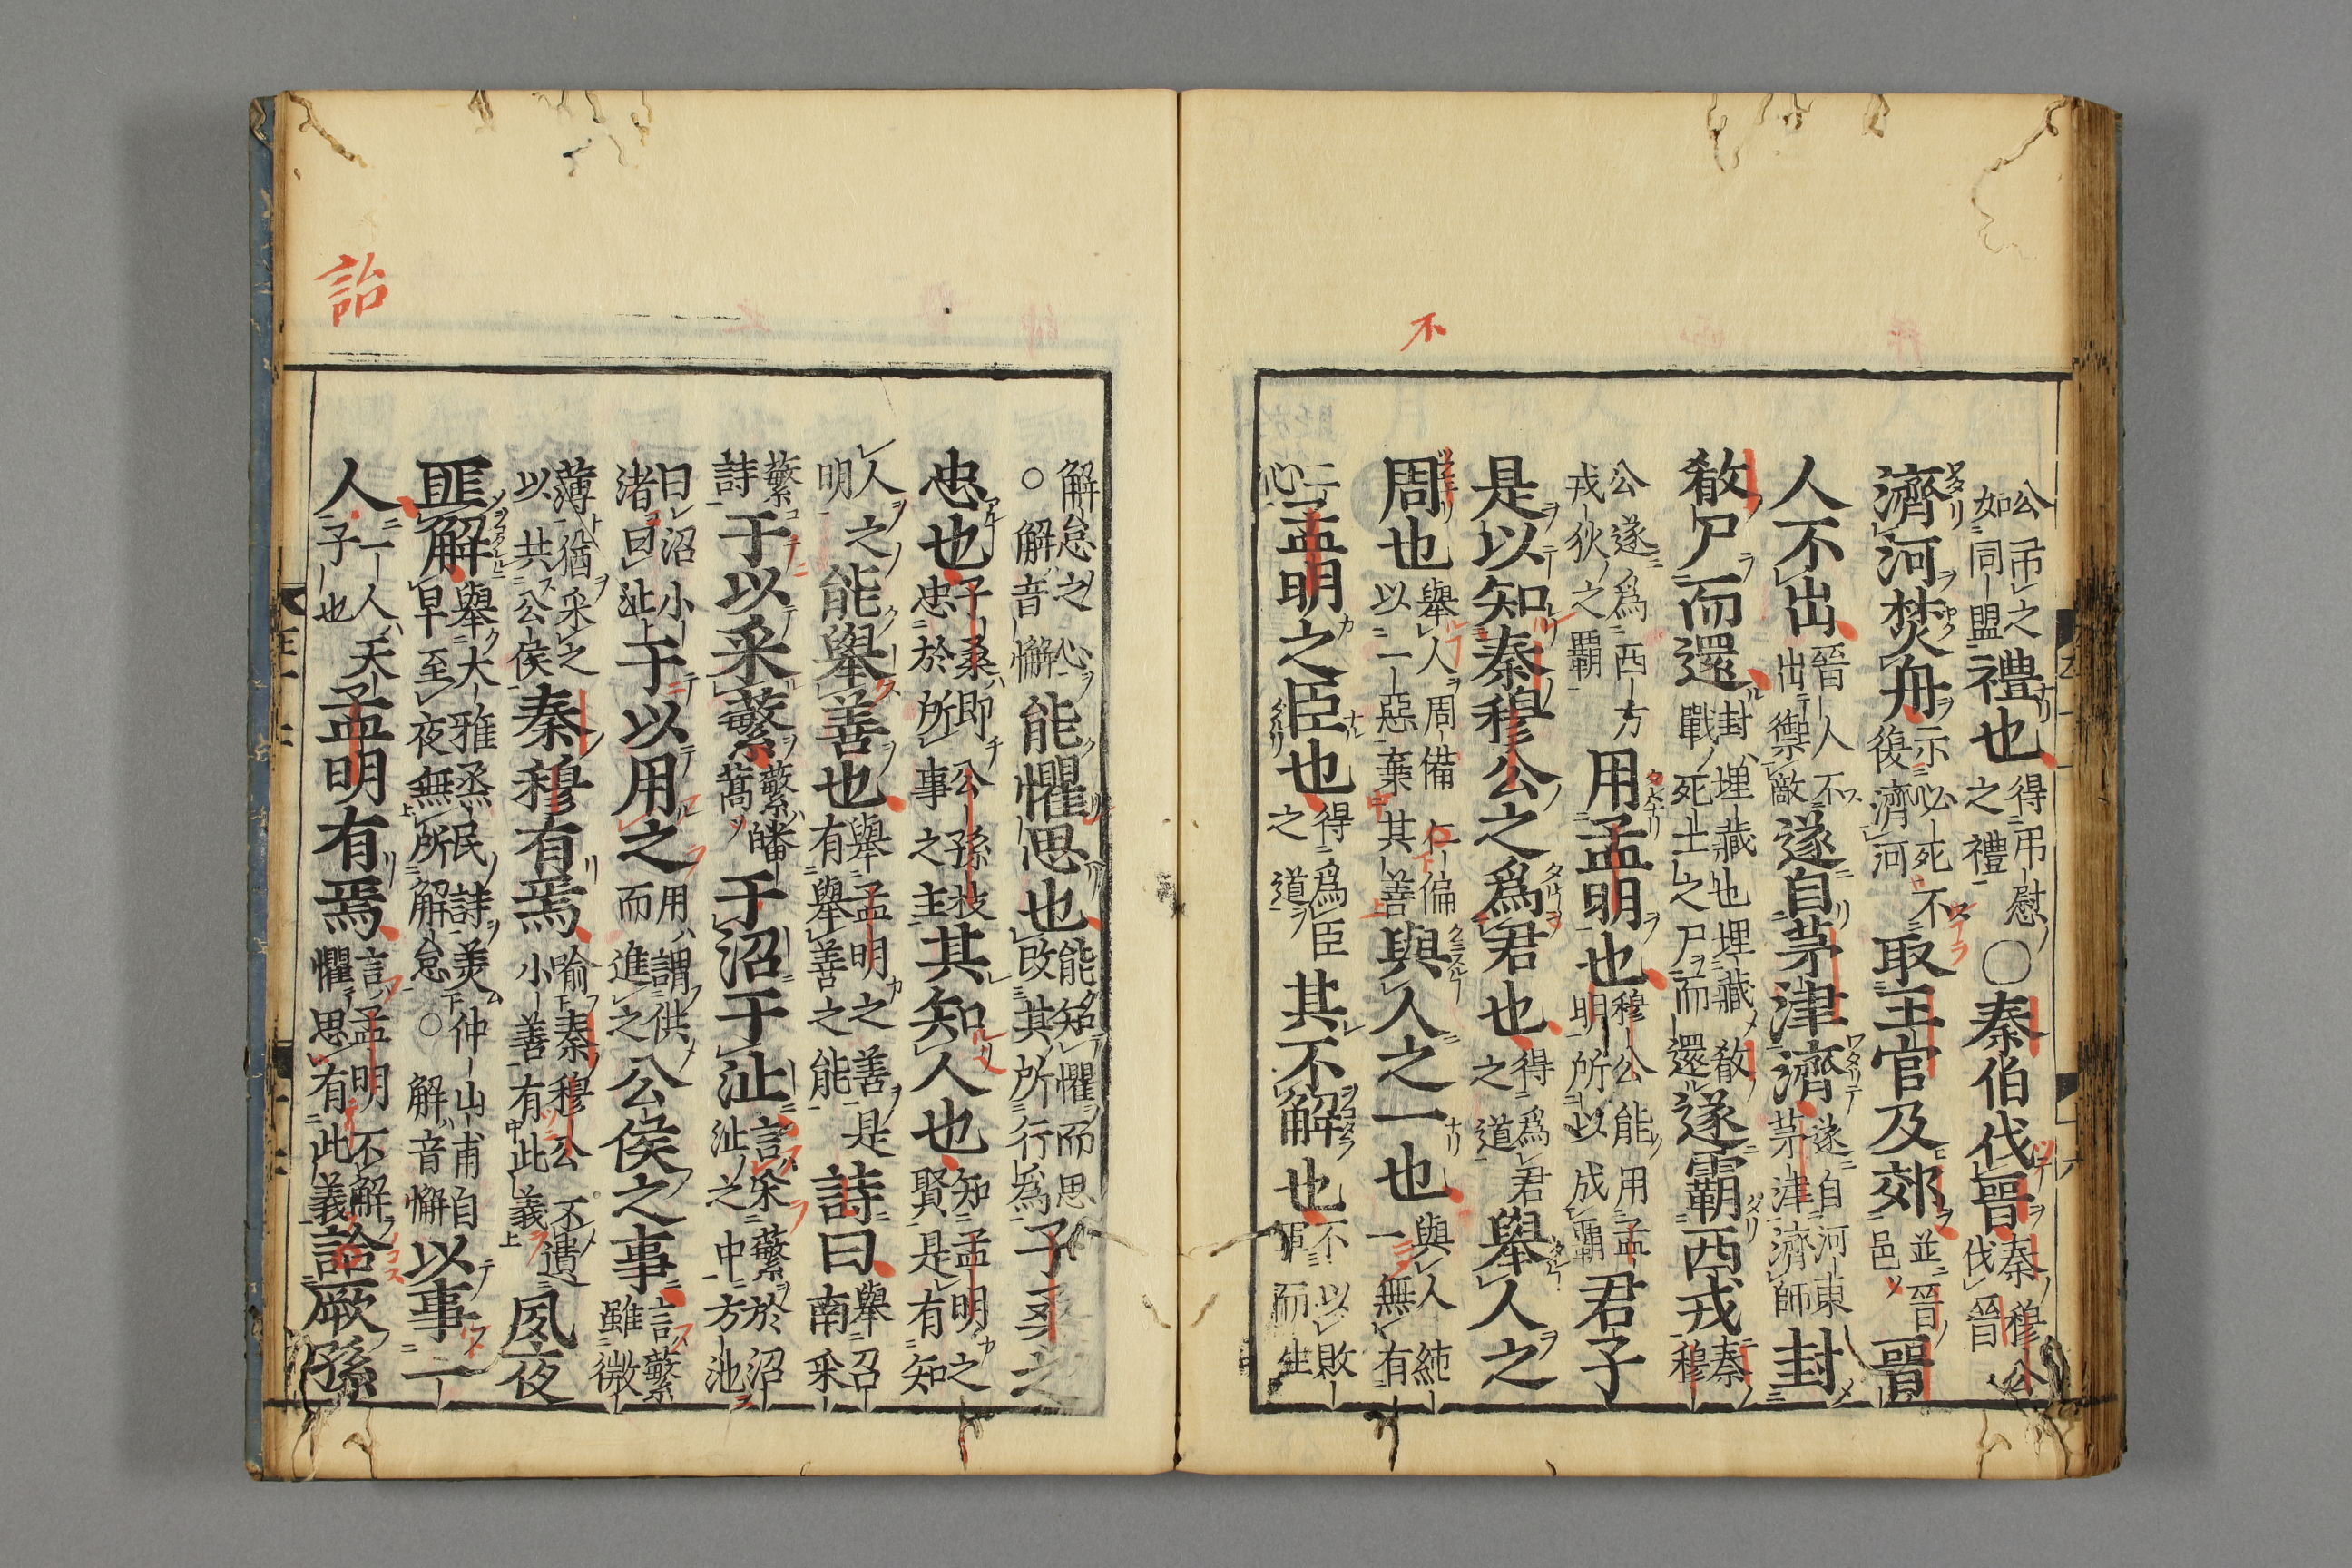 公弔之如同盟禮也得弔慰之禮○秦伯伐晉秦穆公伐晉
濟河焚舟示必死不復濟河取王官及郊並晉邑晉
人不出晉人不出禦敵遂自茅津濟遂自河東茅津濟師封
殽尸而還封埋藏也埋藏殽戰死士之尸而還遂霸西戎秦穆
公遂爲西方戎狄之霸用孟明也穆公能用孟明所以成霸君子
是以知秦穆公之爲君也得爲君之道舉人之
不
周也舉人周備偏以一惡棄其善與人之一也與人純一無有
二心孟明之臣也得爲臣之道其不解也不以敗軍而生
解怠之心○解音懈能懼思也能知懼而思改其所行爲子桑之
忠也子桑即公孫枝忠於所事之主其知人也知孟明之賢是有知
人之明能舉善也舉孟明之善是有舉善之能詩曰舉召南采
蘩詩于以采蘩蘩皤蒿于沼于沚言采蘩於沼沚之中方池
曰沼小渚曰沚于以用之用謂供而進之公侯之事言蘩雖微
薄猶采之以共公侯秦穆有焉喻秦穆公不遺小善有此義夙夜
匪解舉大雅烝民詩美仲山甫自早至夜無所解怠○解音懈以事一
詒
人一人天子也孟明有焉言孟明不解懼思有此義詒厥孫